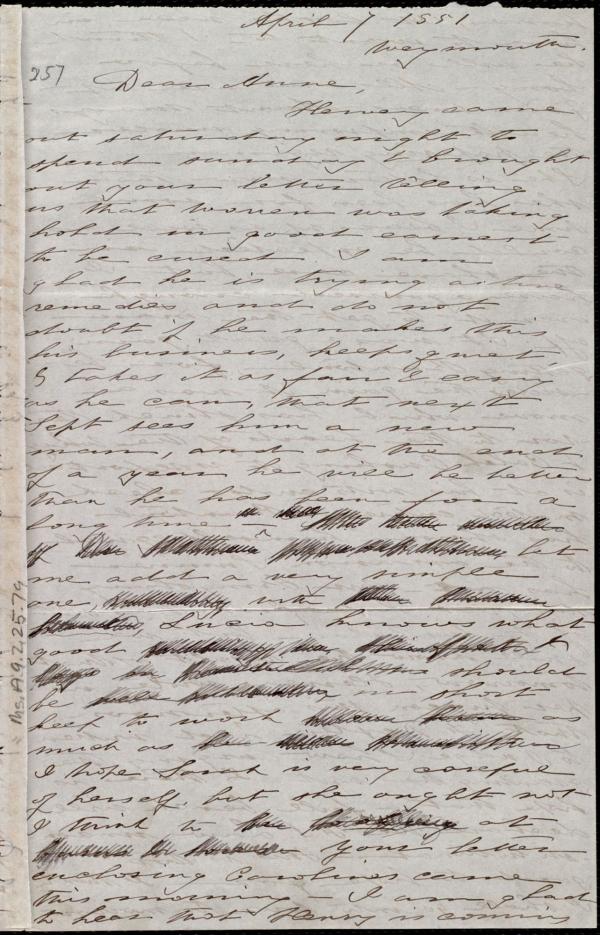 April 7 1851
Weymouth.
257
Dear Anne,
Hervey came
out saturday night to
spend sunday & brought
out your letter telling
us that Warren was taking
hold in good earnest
to be cured I am
glad he is trying active
remedies and do not
doubt if he makes this
his business, keeps quiet
& takes it as fair & easy
as he can, that next
Sept sees him a new
man, and at the end
of a year he will be better
than he has been for a
long time
let
me add a very simple
one, with
Lucia knows what
good
should
be in short
keep to work as
much as
I hope Sarah is very careful
of herself, but she ought not
I think to at
your letter
enclosing Carolines came
this morning - I am glad
to hear that Henry is coming
Ms.A.9.2.25.79